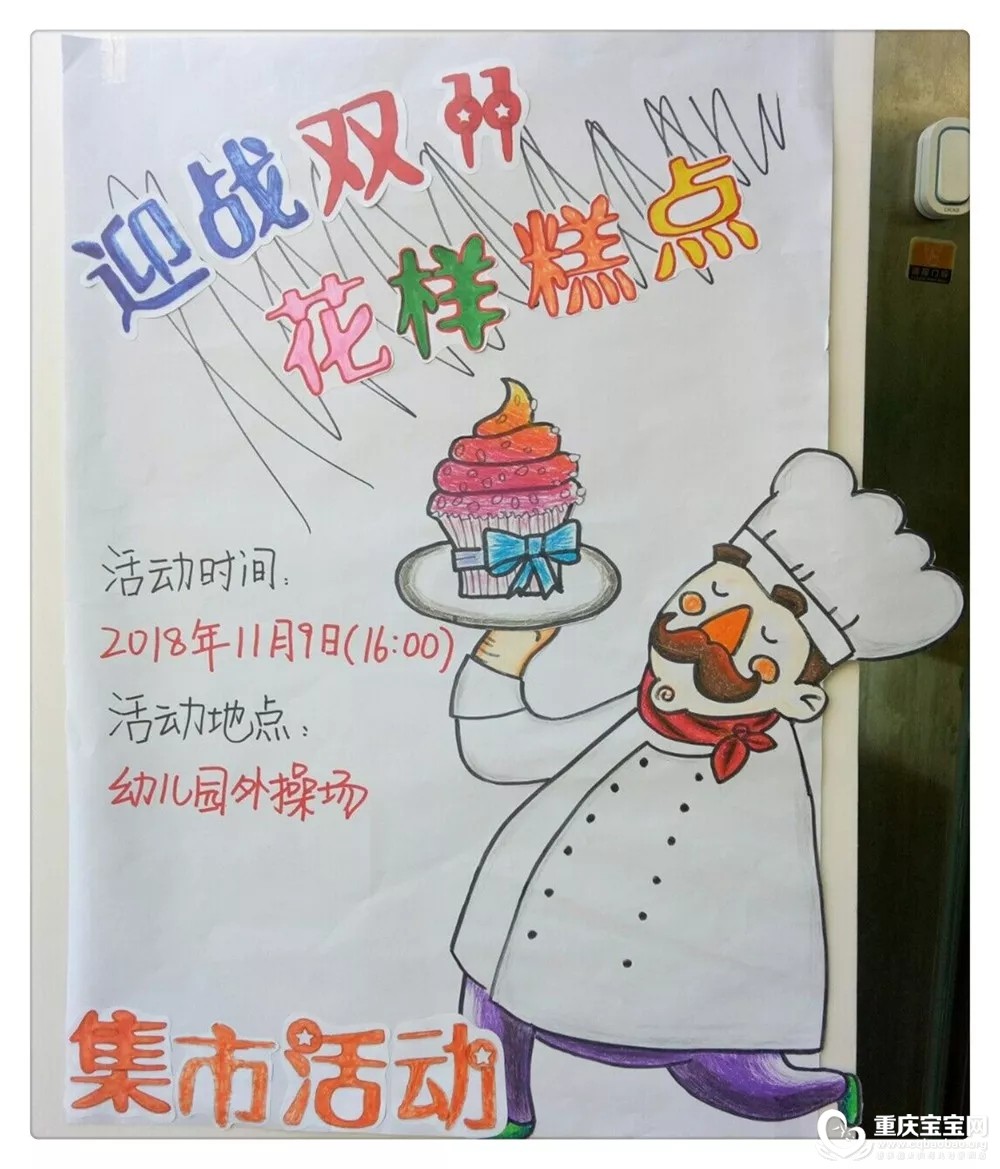 迎战双11
花样糕点
活动时间:
2018年11月9日(16:00)
活动地点:
幼儿园外操场
集市活动
重庆宝宝网